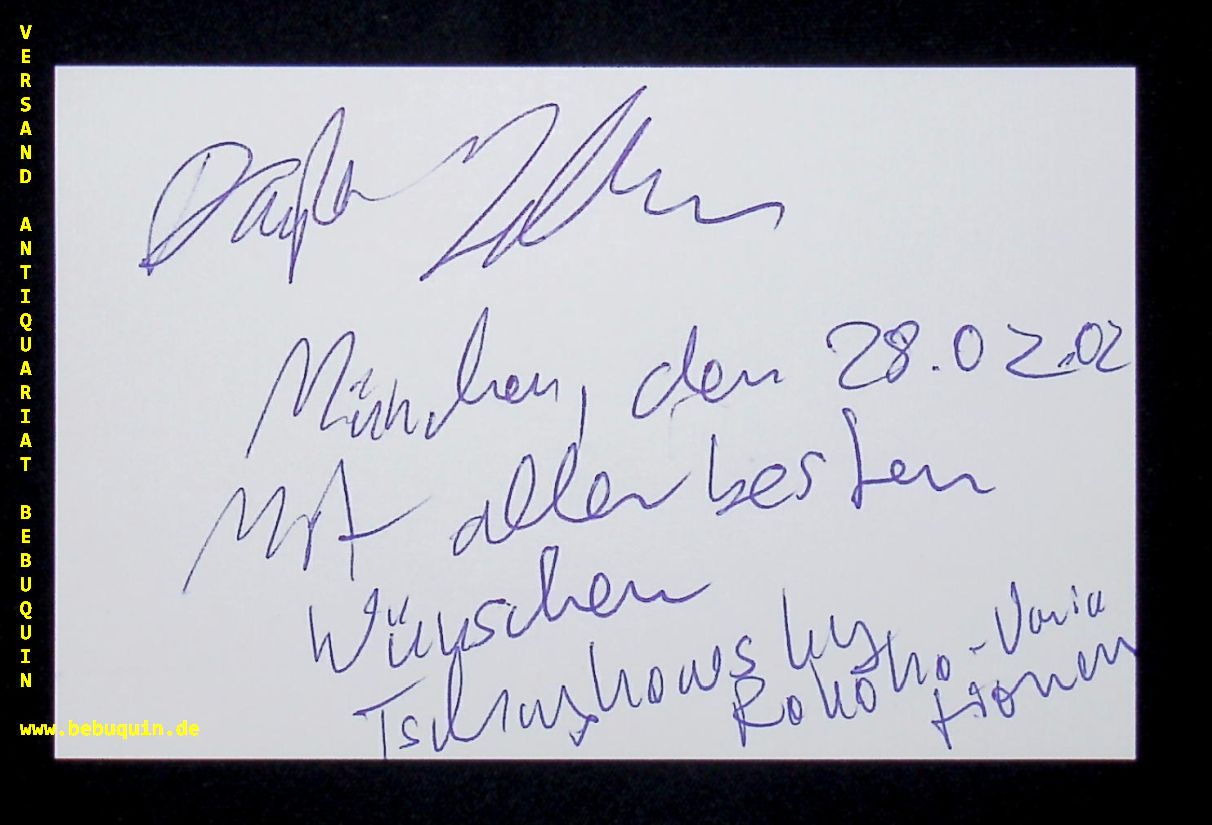 VERSAND ANTIQUARIAT BEBUQUIN
www.bebuquin.de
München, den 28.02.02
Mit allerbesten
Wünschen
Tschaykowsky
Rokoko-Varia
tionen